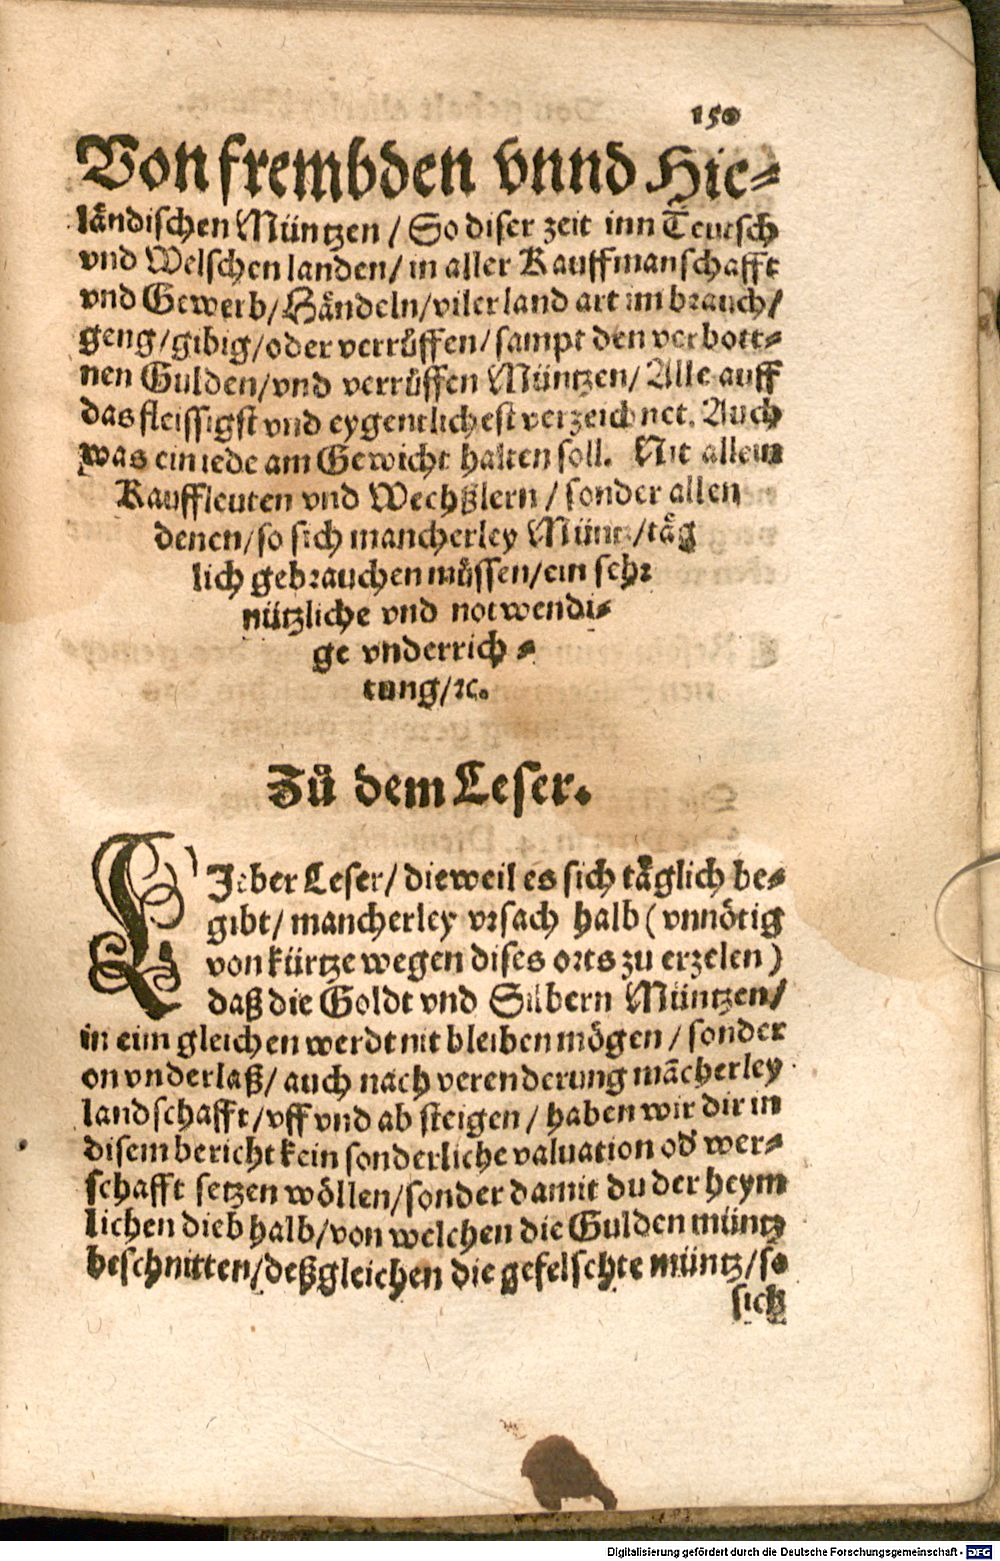 150
Von frembden vnnd Hie⸗
ländischen Müntzen / So diser zeit inn Teutsch
vnd Welschen landen / in aller Kauffmanschafft
vnd Gewerb / Händeln / viler land art im brauch /
geng / gibig / oder verrůffen / sampt den verbott⸗
nen Gulden / vnd verrůffen Müntzen / Alle auff
das fleissigst vnd eygentlichest verzeichnet. Auch
was ein iede am Gewicht halten soll. Nit allein
Kauffleuten vnd Wechßlern / sonder allen
denen / so sich mancherley Müntz / täg
lich gebrauchen müssen / ein sehr
nützliche vnd notwendi⸗
ge vnderrich⸗
tung / ꝛc.
Zů dem Leser.
LIeber Leser / dieweil es sich täglich be⸗
gibt / mancherley vrsach halb ( vnnötig
von kürtze wegen dises orts zu erzelen )
daß die Goldt vnd Silbern Müntzen /
in eim gleichen werdt nit bleiben mögen / sonder
on vnderlaß / auch nach verenderung mācherley
landschafft / vff vnd ab steigen / haben wir dir in
disem bericht kein sonderliche valuation od̓ wer⸗
schafft setzen wöllen / sonder damit du der heym
lichen dieb halb / von welchen die Gulden müntz
beschnitten / deßgleichen die gefelschte müntz / so
sich
Digitalisierung gefördert durch die Deutsche Forschungsgemeinschaft - DFG